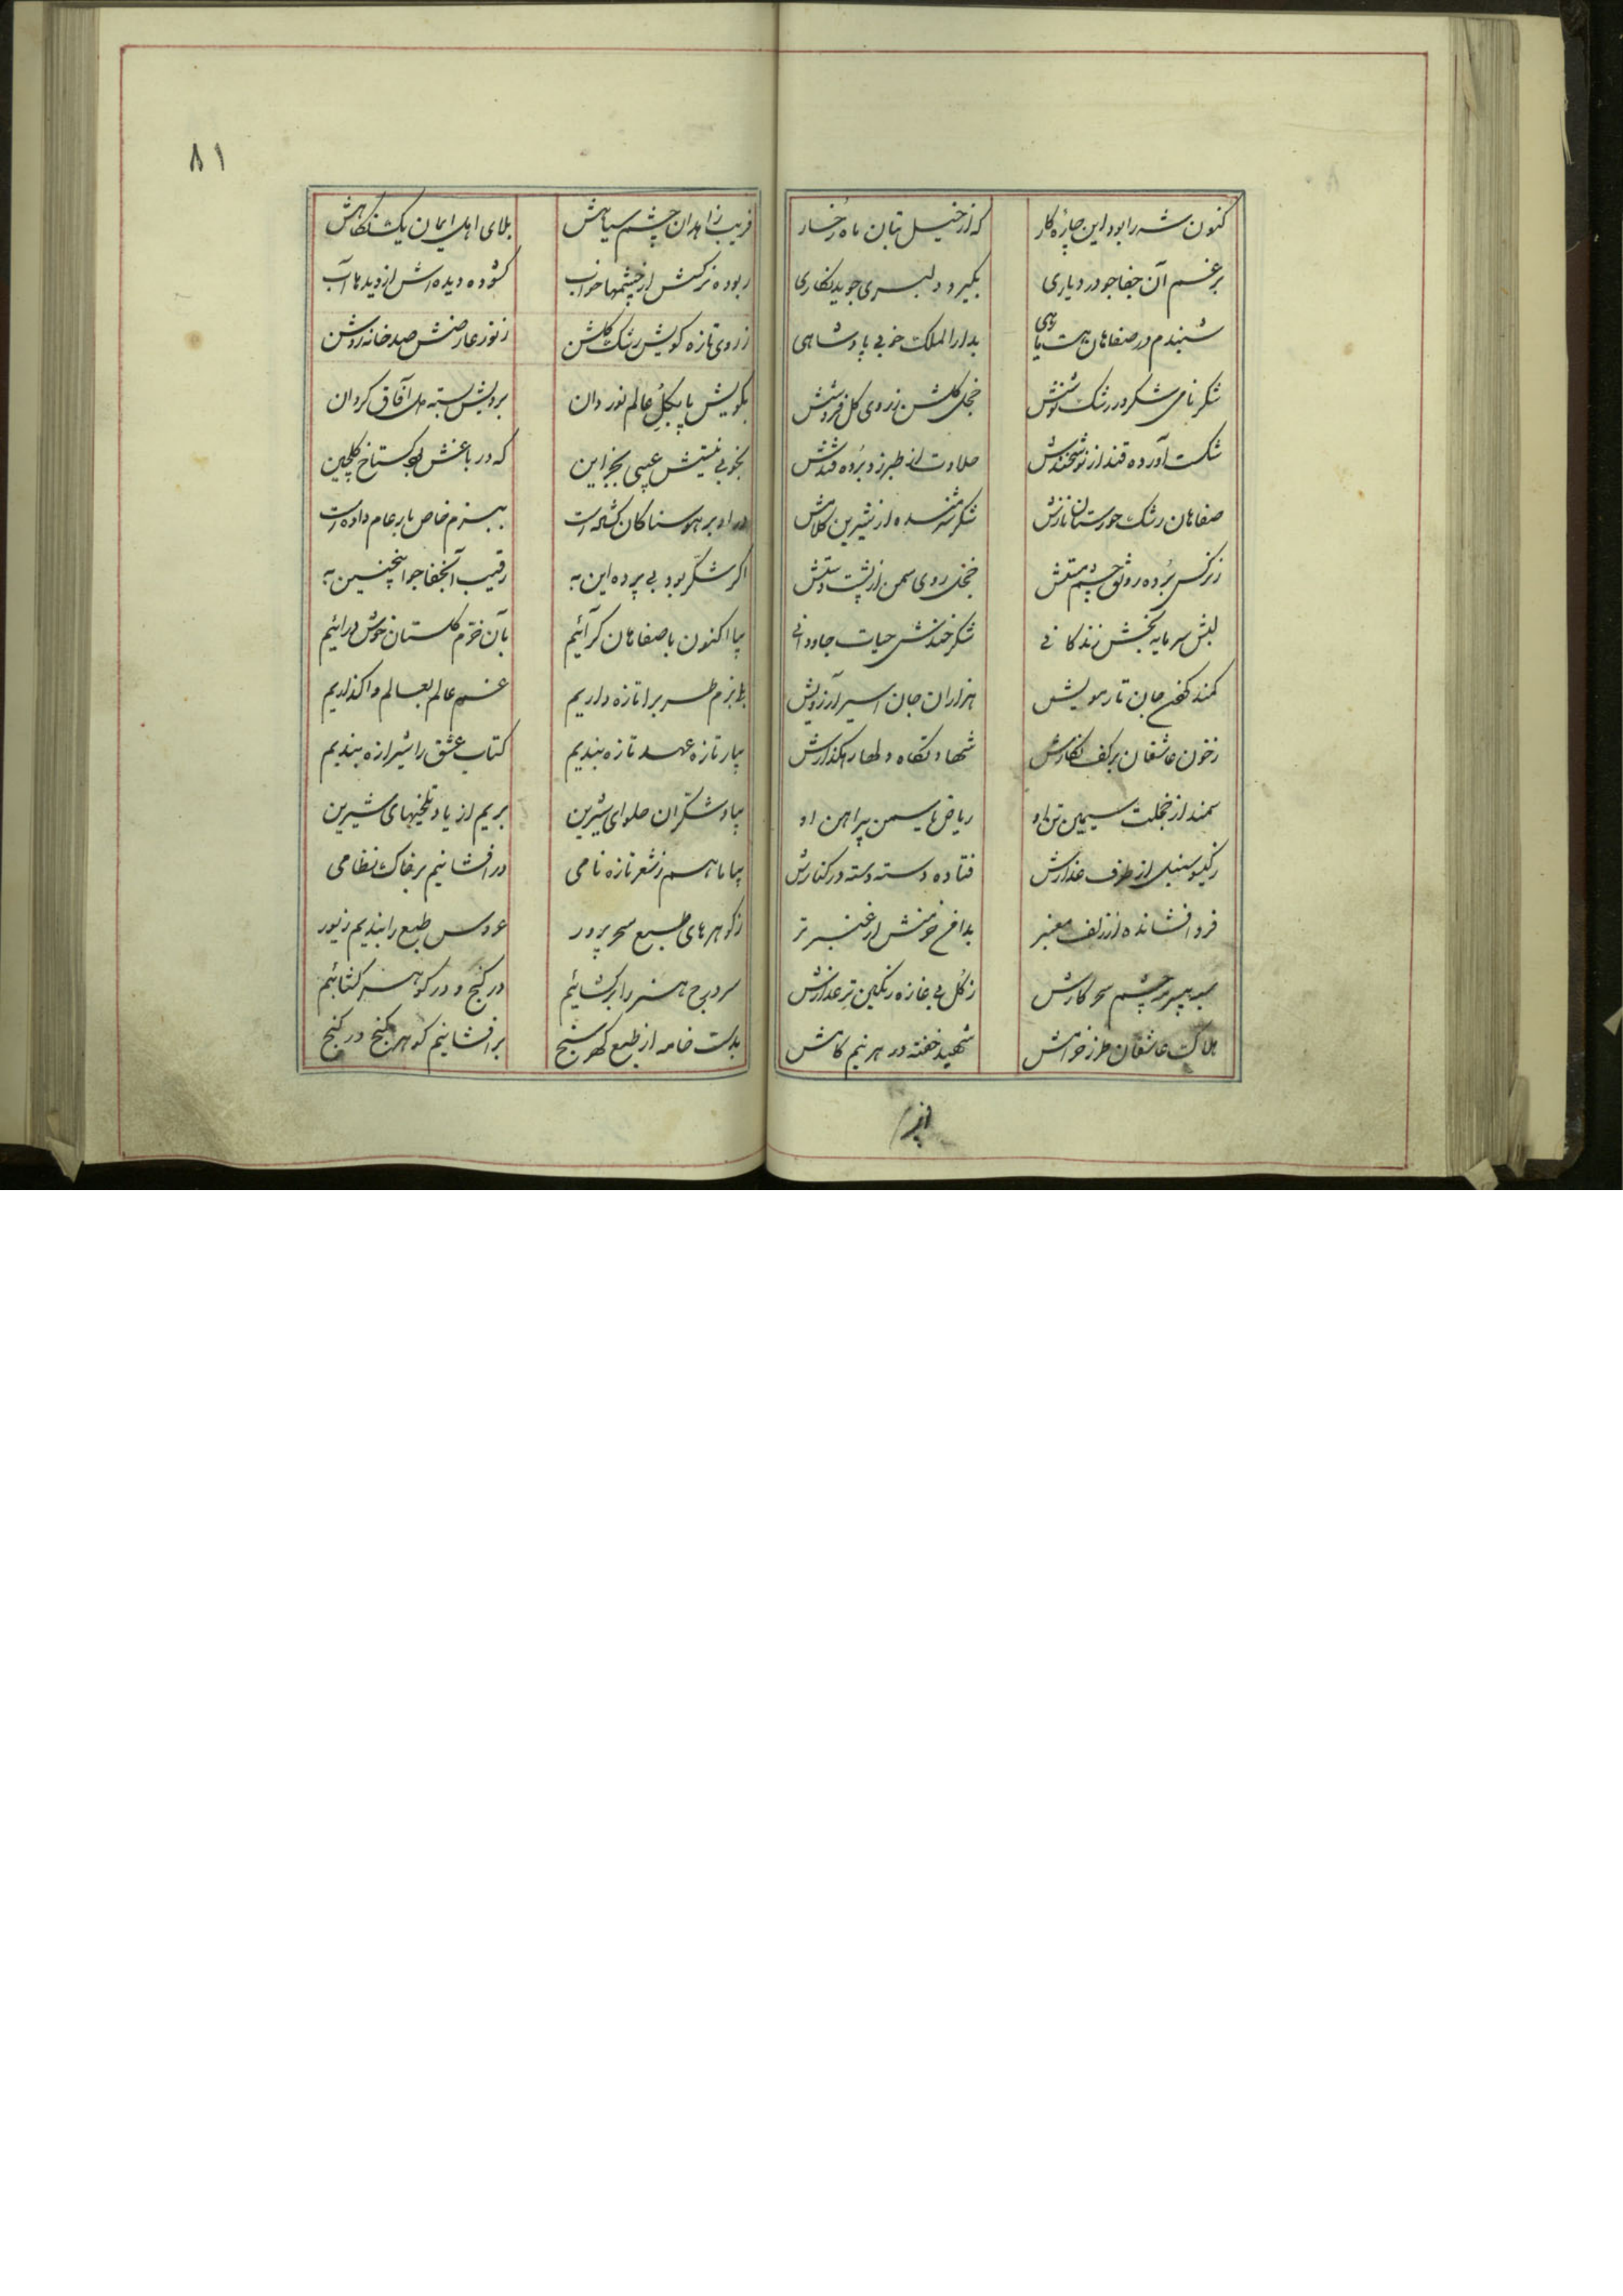 کنون شه را بود این چاره کار که از خیل بتان ماه رخسار
برغم آن جفاجو در دیاری بگیرد دلبری جوید نگاری
شنیدم در صفاهان هست ماهی بدار الملک خوبی پادشاهی
شکر نامی شکر در رشک نوشش خجل گلشن ز روی گل فروشش
شکست آورده قند از نوشخندش حلاوت از طبرزد برده قندش
صفاهان رشک خورستان نازش شکر شرمنده از شیرین کلامش
ز نرگس برده رونق چشم مستش خجل روی سمن از پشت دستش
لبش سرمایه بخش زندگانی شکرخندش حیات جاودانی
کمند کهن جان تار مویش هزاران جان اسیر آرزویش
ز خون عاشقان بر کف نگارش شهادتگاه دلها رهگذارش
سمند از خجلت سیمین تن او ریاض یاسمن پیراهن او
ز گیسو سنبل از طرف عذارش فتاده دسته دسته در کنارش
فرو افشانده از زلف معنبر بدامن خرمنش از عنبر تر
سیه چشم سحرکارش ز گل بی غازه رنگین تر عذارش
هلاک عاشقان طرز خرامش شهید خفته در هر نیم گامش
افریب
۸۱
فریب زاهدان چشم سیاهش بلای اهل ایمان یک نگاهش
ربوده نرگسش از چشمها خواب گشوده دیده اش از دیدها آب
ز روی تازه کویش رشک گلشن ز نور عارضش صد خانه روشن
بکویش پا بگل عالم نوردان برویش بسته دل آفاق گردان
بخوبی نیستش عیبی بجز این که در باغش بود گستاخ گلچین
در او بر هوسناکان گشاده است ببزم خاص بار عام داده است
اگر شکر بود بی پرده این به رقیب آنجفاجو اینچنین به
بیا اکنون باصفاهان گرائیم بآن خرم گلستان خوش درائیم
بساط بزم طرب را تازه داریم غم عالم بعالم واگذاریم
بیار تازه عهد تازه بندیم کتاب عشق را شیرازه بندیم
بیاد شکران حلوای شیرین بریم از یاد تلخیهای شیرین
بیا ما هم ز شعر تازه نامی در افشانیم بر خاک نظامی
ز گوهرهای طبع سحر پرور عروس طبع را بندیم زیور
سر درج هنر را برگشائیم در گنج و در گوهر گشائیم
بدست خامه از طبع گهرسنج برافشانیم گوهر گنج در گنج